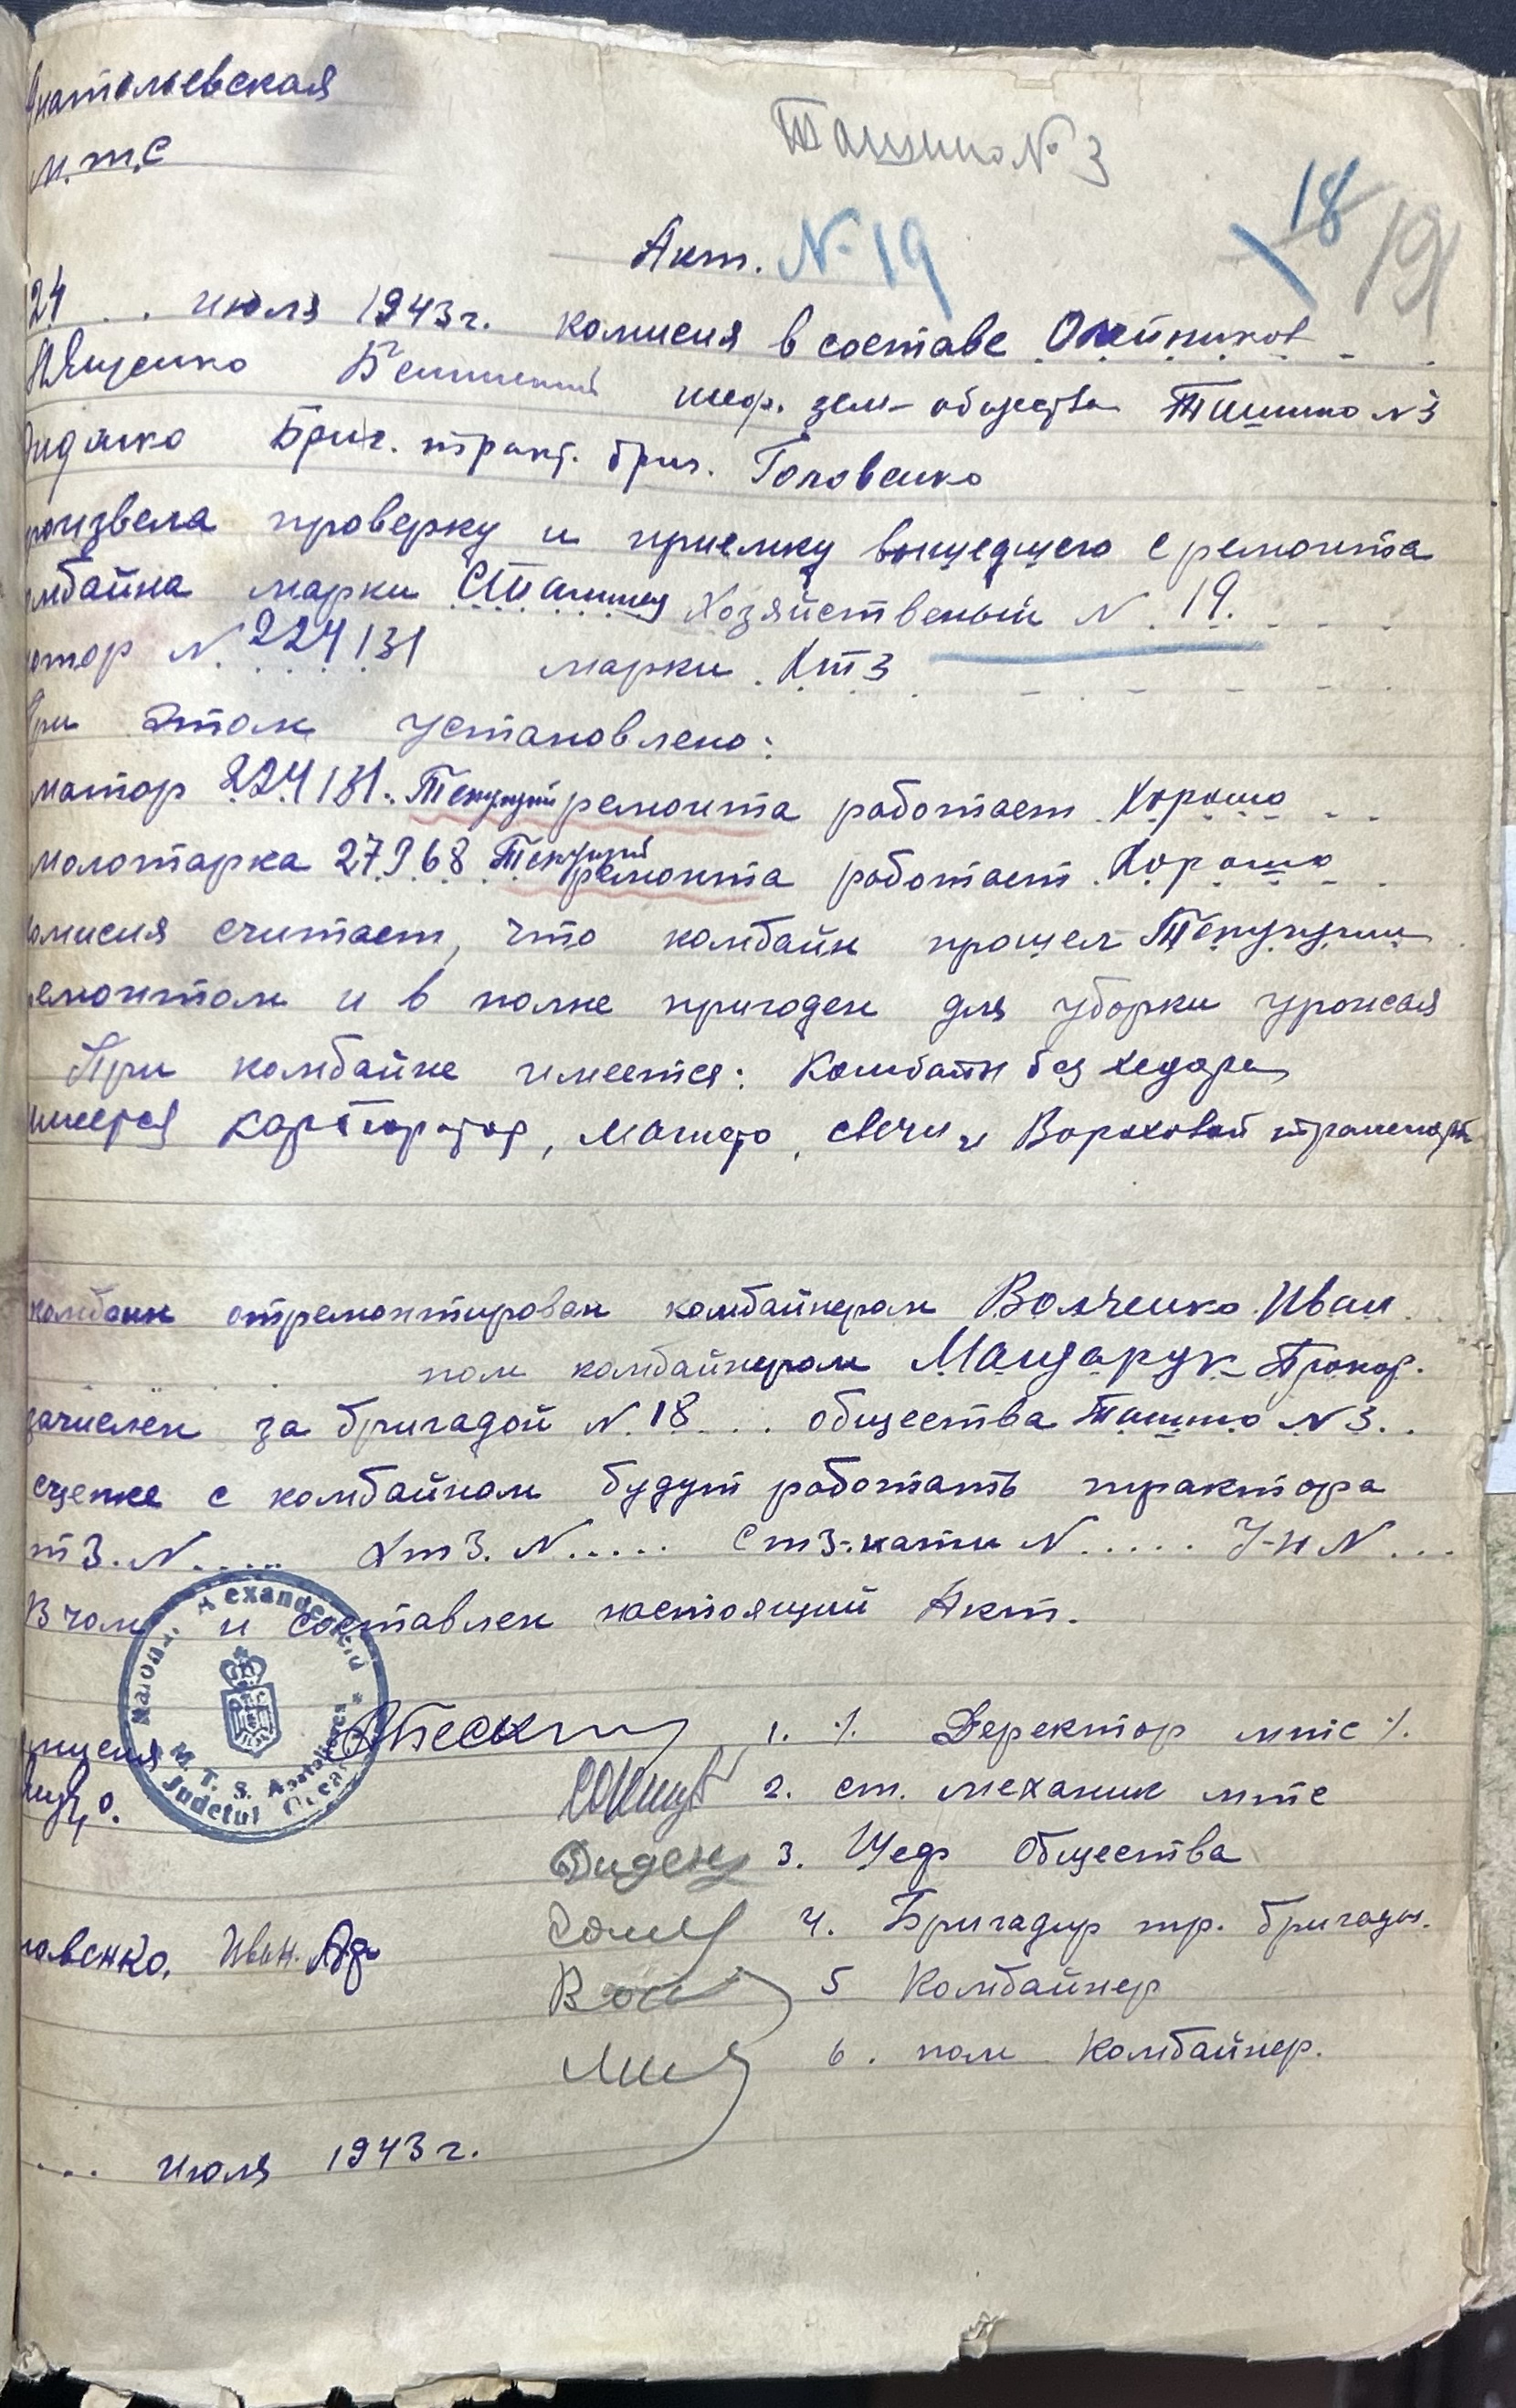 Анатольевская
М.Т.С
Ташино № 3
18
19
Акт. № 19
24 . . июля 1943 г. комисия в составе Олейников
Ященко шеф. зем-общества Ташино № 3
Бриг. тракт. бриг. Головенко
произвела проверку и приемку вышедшего с ремонта
комбайна марки Хозяйственый № 19.
мотор № 224131 марки ХТЗ
При этом установлено:
мотор 224131. Текущий ремонта работает Хорошо
молотарка 27968 Текущий ремонта работает Хорошо
комисия считает, что комбайн прошел Текущим
ремонтом и в полне пригоден для уборки урожая
При комбайне имеется: Комбайн без хедора
имеется карбюратор, магнето, свечи и Вороховой транспорт
комбаин отремонтирован комбайнером Волченко Иван
пом комбайнером Мандарук Прокоф.
зачислен за бригадой № 18 . . . общества Ташино № 3. .
сцепке с комбайном будут работать трактора
ТЗ. № ..... ХТЗ. № ..... СТЗ-нати № ..... У-н № ...
В чом и составлен настоящий Акт.
Alexande
M. T. S. Anatolievca
Judetul Oceacov
1. ٪ Деректор мтс ٪.
2. ст. механик мтс
3. Шеф общества
4. Бригадир тр. бригады.
Головенко. Иван.
5 Комбайнер
6. пом Комбайнер.
... июля 1943 г.